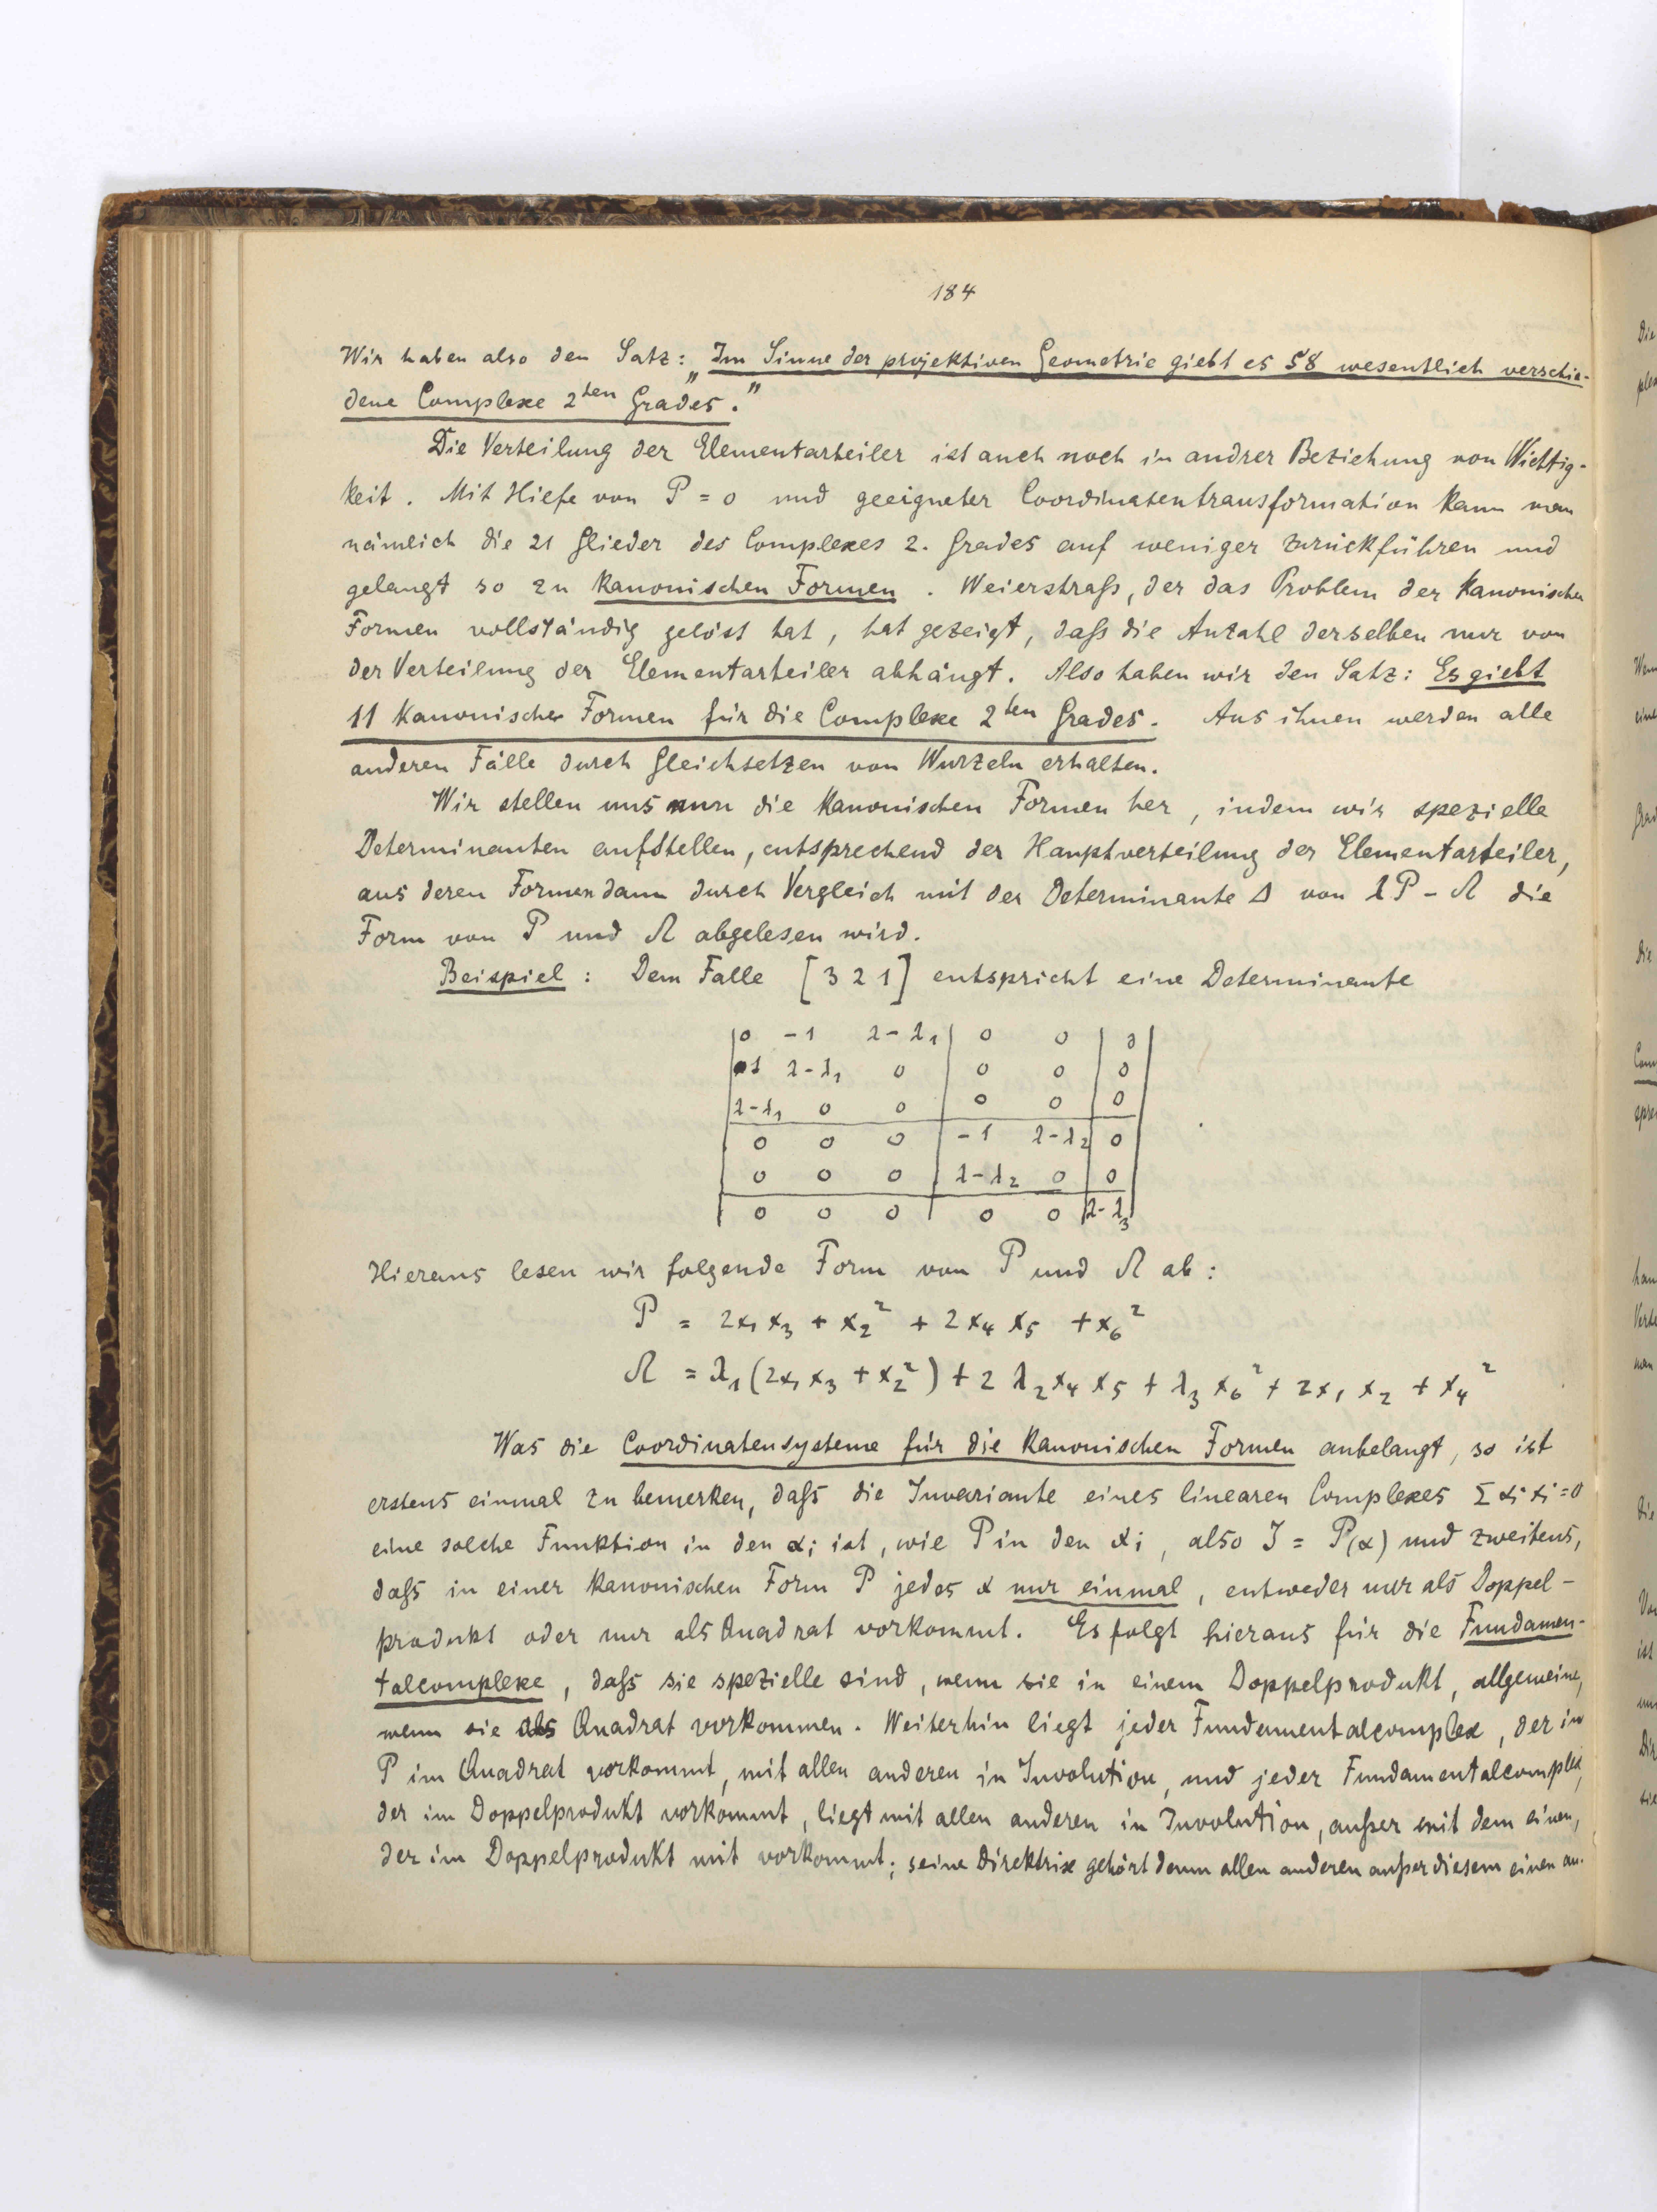 184
Wir haben also den Satz: „Im Sinne der projektiven Geometrie giebt es 58 wesentlich verschie-
dene Complexe 2ten Grades."
Die Verteilung der Elementarteiler ist auch noch in andrer Beziehung von Wichtig-
keit. Mit Hilfe von P = 0 und geeigneter Coordinatentransformation kann man
nämlich die 21 Glieder des Complexes 2. Grades auf weniger zurückführen und
gelangt so zu kanonischen Formen. Weierstraß, der das Problem der kanonischen
Formen vollständig gelöst hat, hat gezeigt, daß die Anzahl derselben nur von
der Verteilung der Elementarteiler abhängt. Also haben wir den Satz: Es giebt
11 kanonische Formen für die Complexe 2ten Grades. Aus ihnen werden alle
anderen Fälle durch Gleichsetzen von Wurzeln erhalten.
Wir stellen uns nun die kanonischen Formen her, indem wir spezielle
Determinanten aufstellen, entsprechend der Hauptverteilung der Elementarteiler,
aus deren Formen dann durch Vergleich mit der Determinante Δ von λP - Ω die
Form von P und Ω abgelesen wird.
Beispiel: Dem Falle [3 2 1] entspricht eine Determinante
0 -1 λ-λ₁ 0 0 0
-1 λ-λ₁ 0 0 0 0
λ-λ₁ 0 0 0 0 0
0 0 0 -1 λ-λ₂ 0
0 0 0 λ-λ₂ 0 0
0 0 0 0 0 λ-λ₃
Hieraus lesen wir folgende Form von P und Ω ab:
P = 2x₁x₃ + x₂² + 2x₄x₅ + x₆²
Ω = λ₁(2x₁x₃ + x₂²) + 2λ₂x₄x₅ + λ₃x₆² + 2x₁x₂ + x₄²
Was die Coordinatensysteme für die kanonischen Formen anbelangt, so ist
erstens einmal zu bemerken, daß die Invariante eines linearen Complexes Σαᵢxᵢ=0
eine solche Funktion in den αᵢ ist, wie P in den xᵢ, also J = P(α) und zweitens,
daß in einer kanonischen Form P jedes x nur einmal, entweder nur als Doppel-
produkt oder nur als Quadrat vorkommt. Es folgt hieraus für die Fundamen-
talcomplexe, daß sie spezielle sind, wenn sie in einem Doppelprodukt, allgemeine,
wenn sie als Quadrat vorkommen. Weiterhin liegt jeder Fundamentalcomplex, der in
P im Quadrat vorkommt, mit allen anderen in Involution, und jeder Fundamentalcomplex,
der im Doppelprodukt vorkommt, liegt mit allen anderen in Involution, außer mit dem einen,
der im Doppelprodukt mit vorkommt; seine Direktrix gehört dann allen anderen außer diesem einen an.